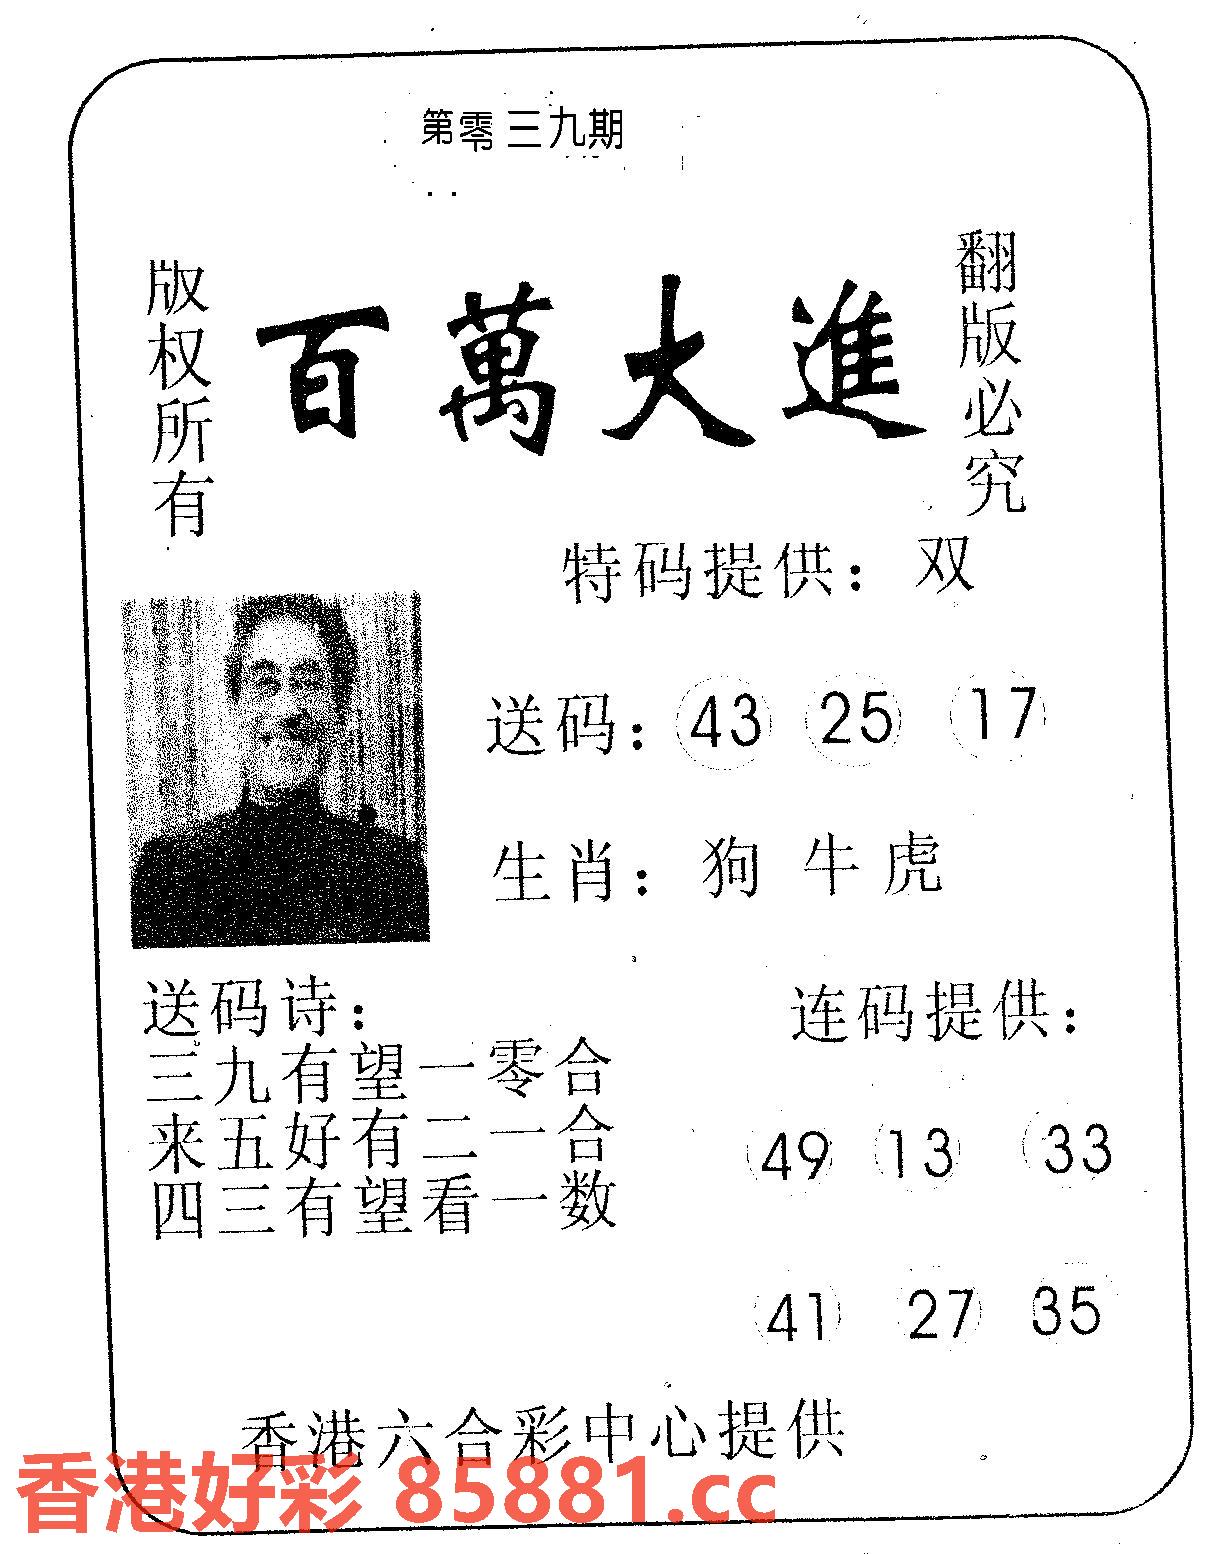 第零三九期
版权所有
百萬大進
翻版必究
特码提供：双
送码：43 25 17
生肖：狗 牛 虎
送码诗：
三九有望一零合
来五好有二一合
四三有望看一数
连码提供：
49 13 33
41 27 35
香港六合彩中心提供
香港好彩 85881.cc